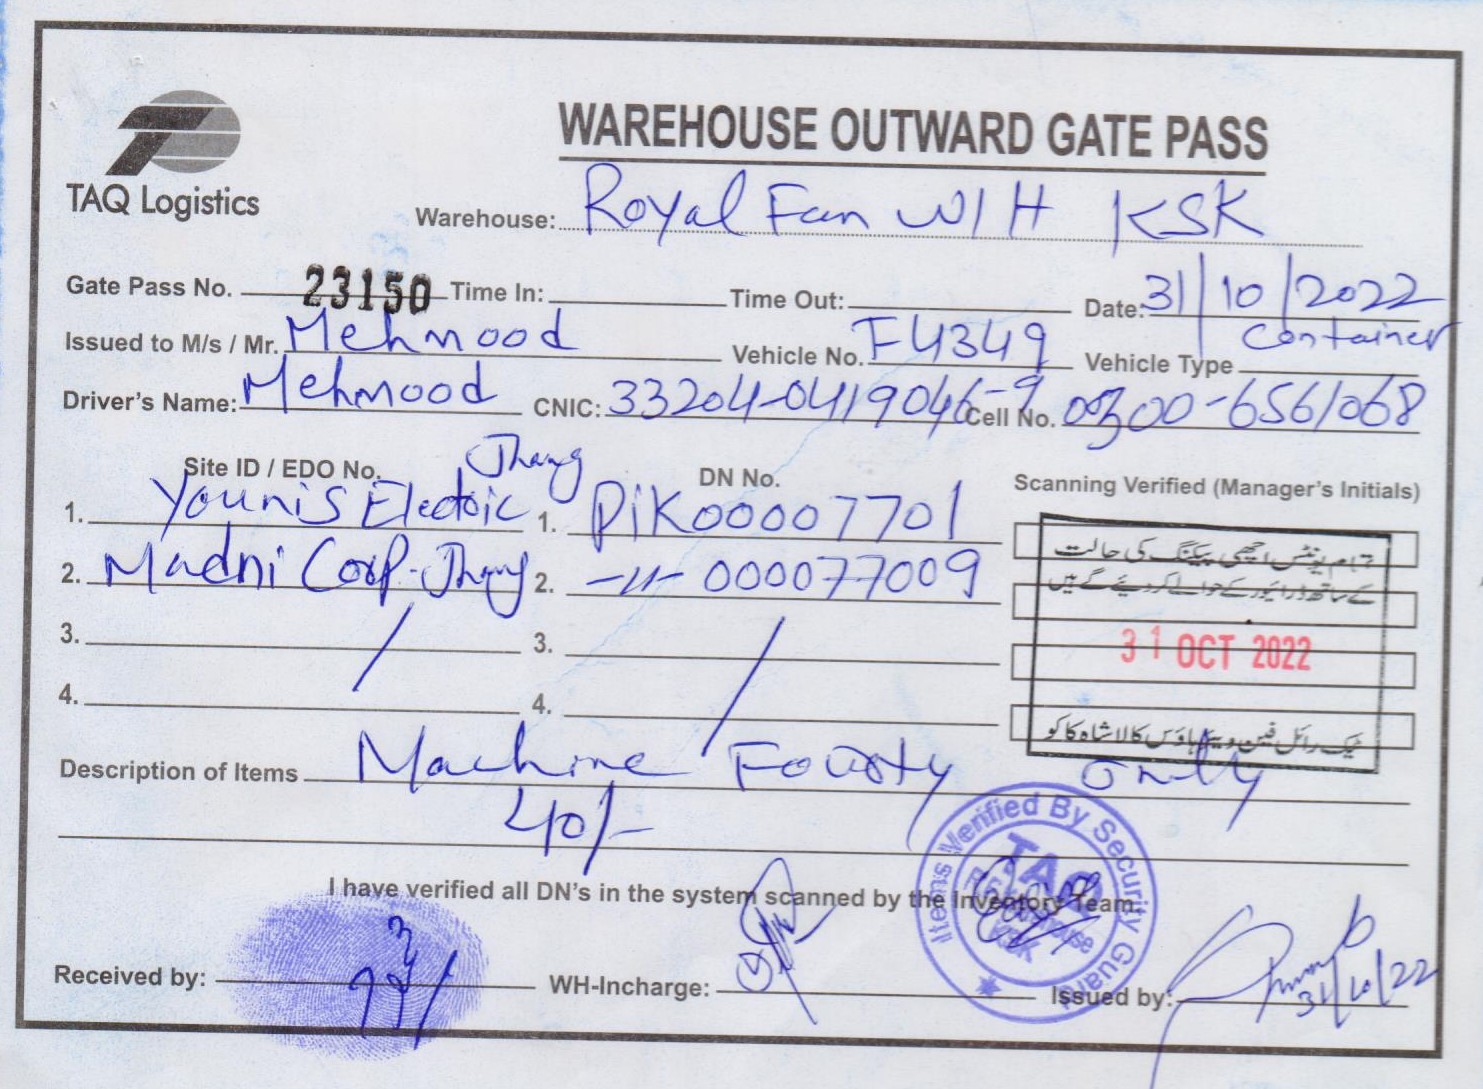 TAQ Logistics
WAREHOUSE OUTWARD GATE PASS
Warehouse: Royal Fan W/H KSK
Gate Pass No. 23150 Time In: Time Out: Date: 31/10/2022
Issued to M/s / Mr. Mehmood Vehicle No. F4349 Vehicle Type Container
Driver's Name: Mehmood CNIC: 33204-0419046-9 Cell No. 0300-6561068
Site ID / EDO No. DN No. Scanning Verified (Manager's Initials)
1. Younis Electoic Jhang 1. PiK00007701
2. Madni Corp. Jhang 2. -11- 000077009
3. 3.
4. 4.
تمام یونٹس اچھی پیکنگ کی حالت
کے ساتھ ڈرائیور کے حوالے کر دیئے گئے ہیں
31 OCT 2022
ٹیک رائل فین ویئر ہاؤس کالا شاہ کاکو
Description of Items Machine Fourty Only
40/-
I have verified all DN's in the system scanned by the Inventory Team.
Items Verified By Security Guard
TAQ
Warehouse
KSK
Received by: WH-Incharge: Issued by: 31/10/22